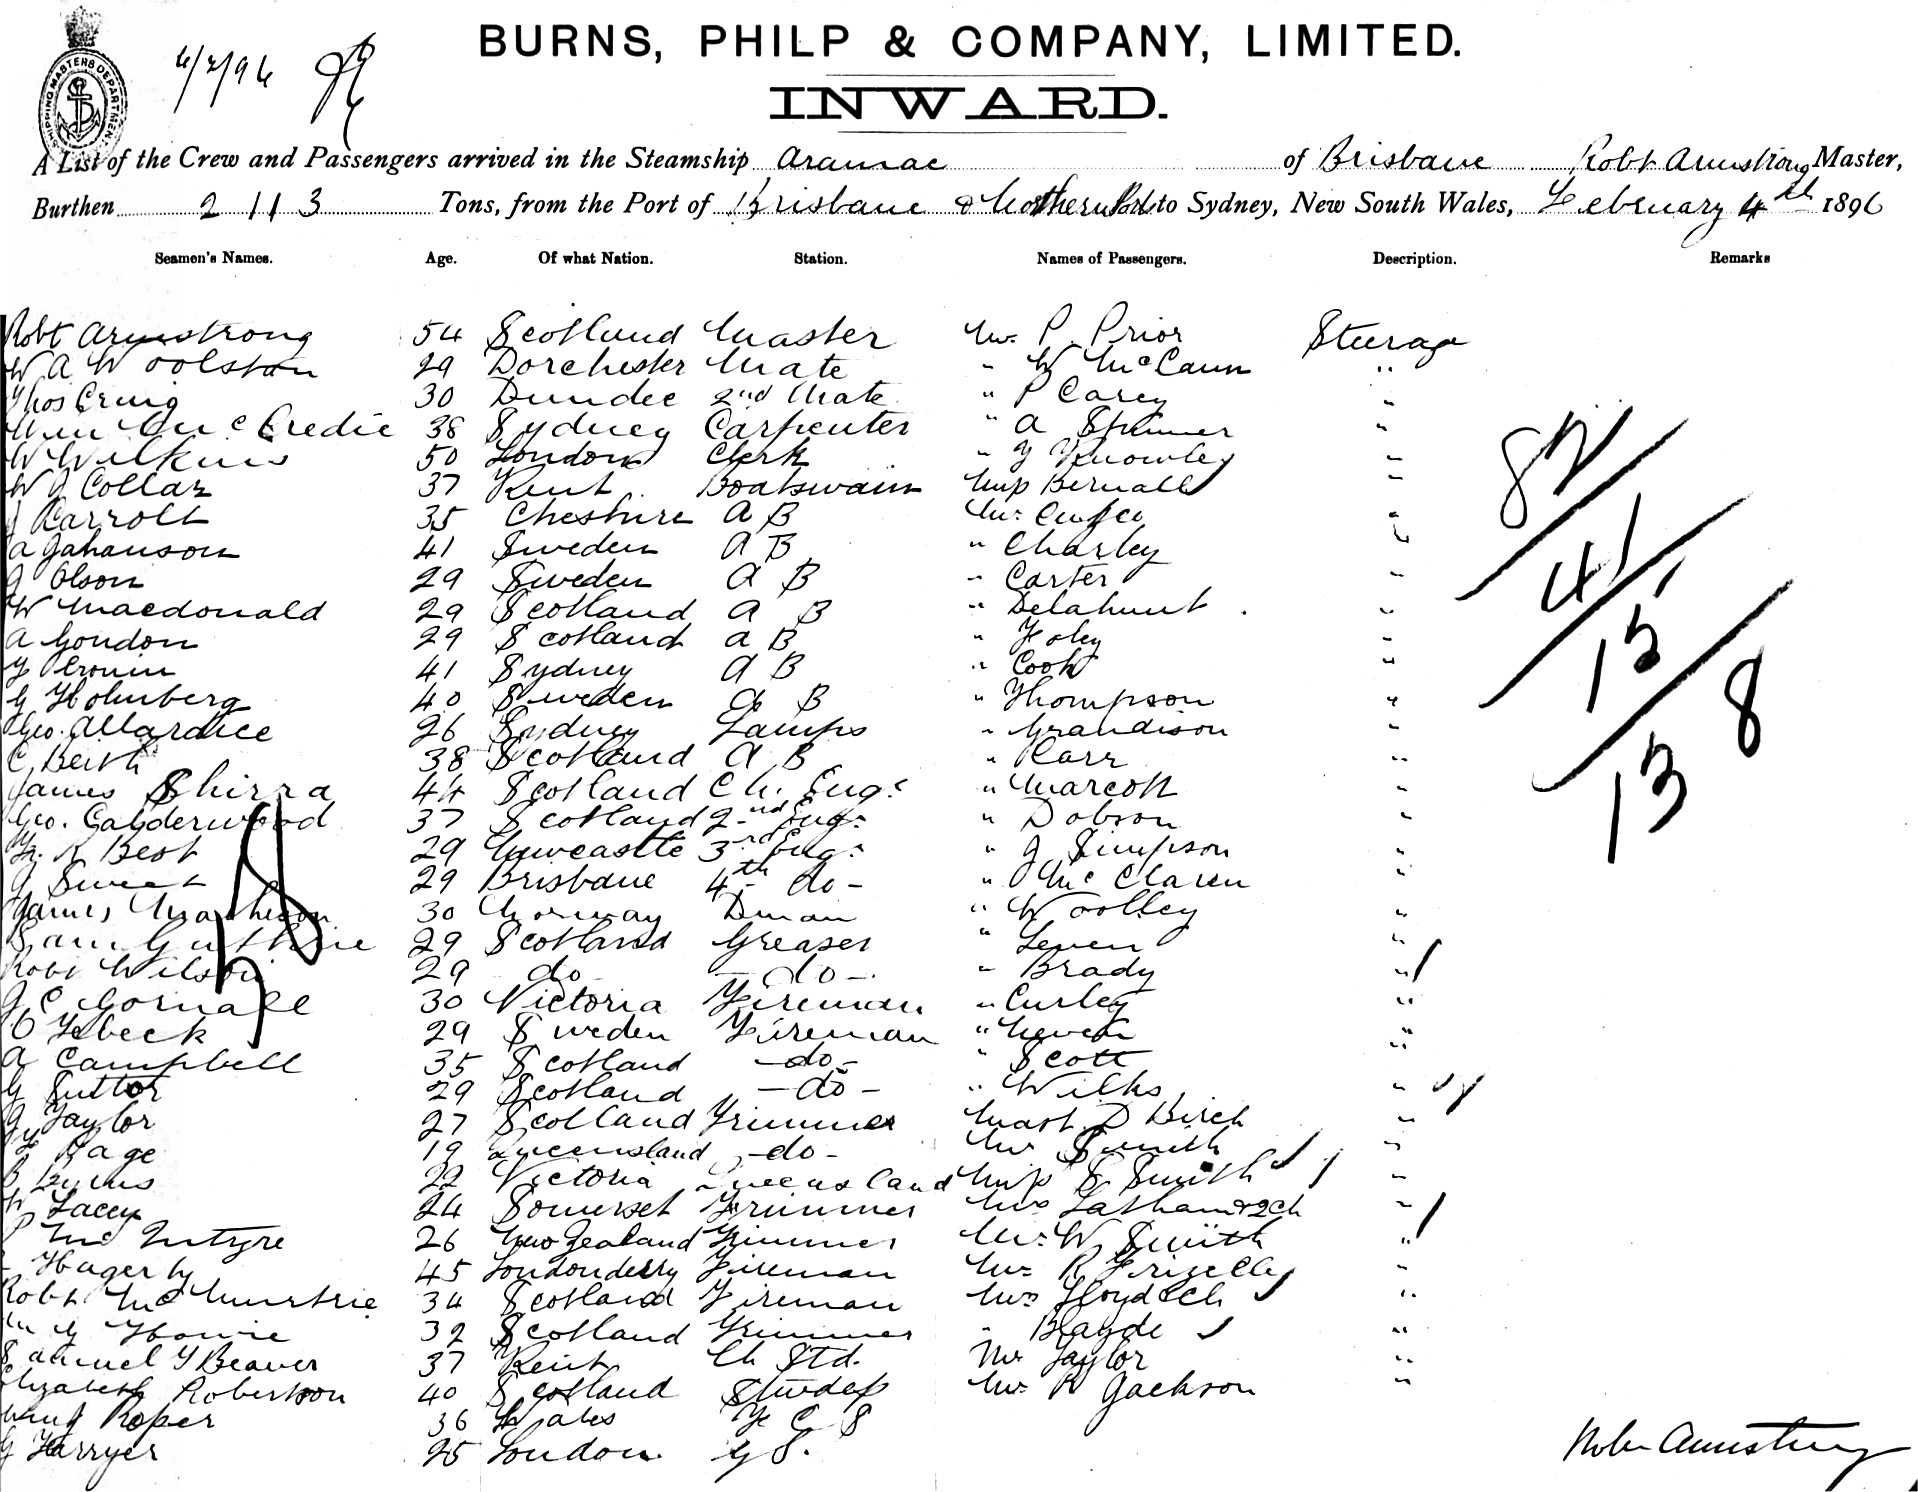 BURNS, PHILP & COMPANY, LIMITED.
4/2/96
SHIPPING MASTERS DEPARTMENT
INWARD.
A List of the Crew and Passengers arrived in the Steamship Aramac of Brisbane Robt Armstrong Master,
Burthen 2113 Tons, from the Port of Brisbane & Northern to Sydney, New South Wales, February 4th 1896
Seamen's Names. Age. Of what Nation. Station. Names of Passengers. Description. Remarks
Robt Armstrong 54 Scotland Master Mr. P. Prior Steerage
W A Woolston 29 Dorchester Mate " W McCann "
Thos Craig 30 Dundee 2nd Mate " P Carey "
Wm McCredie 38 Sydney Carpenter " A "
W Wilkins 50 London Clerk " Knowles "
W J Collar 37 Kent Boatswain "
J Carroll 35 Cheshire A B Mr. "
A Johanson 41 Sweden A B " Charley "
Olson 29 Sweden A B " Carter "
W Macdonald 29 Scotland A B " Delahunt "
A Gordon 29 Scotland A B " Foley "
Cronin 41 Sydney A B " Cook "
G Holmberg 40 Sweden A B " Thompson "
Geo. Allardice 26 Sydney Lamps " Grandison "
C Beith 38 Scotland A B " Carr "
James Shirra 44 Scotland Ch. Engr " "
Geo. Calderwood 37 Scotland 2nd Engr " Dobson "
R Best 29 Newcastle 3rd Engr " J Simpson "
J Sweet 29 Brisbane 4th -do- " McClaren "
James Mathieson 30 Norway Dman " Woolley "
Sam Guthrie 29 Scotland Greaser " Leven "
Robt Wilson 29 do -do- " Brady "
J C 30 Victoria Fireman " Curley "
29 Sweden Fireman " "
A Campbell 35 Scotland -do- " Scott "
G Suttor 29 Scotland -do- " Wilks "
J Taylor 27 Scotland Trimmer Mast D Birch "
Page 19 Queensland -do- Mr Smith "
B Burns 22 Victoria Queensland Miss S Smith
W Lacey 24 Somerset Trimmer Mrs Latham & 2 Ch "
P McIntyre 26 New Zealand Trimmer Mr. W Smith "
Hagerty 45 Londonderry Fireman Mr R "
Robt McMurtrie 34 Scotland Fireman Mrs Lloyd & Ch "
Howie 32 Scotland Trimmer " "
Samuel J Beaver 37 Kent Ch Std. Mr Taylor "
Elizabeth Robertson 40 Scotland Stwdess Mr R Jackson "
Roper 36 Wales F C S
Harryer 25 London S.
82
41
15
13
8
Robt Armstrong